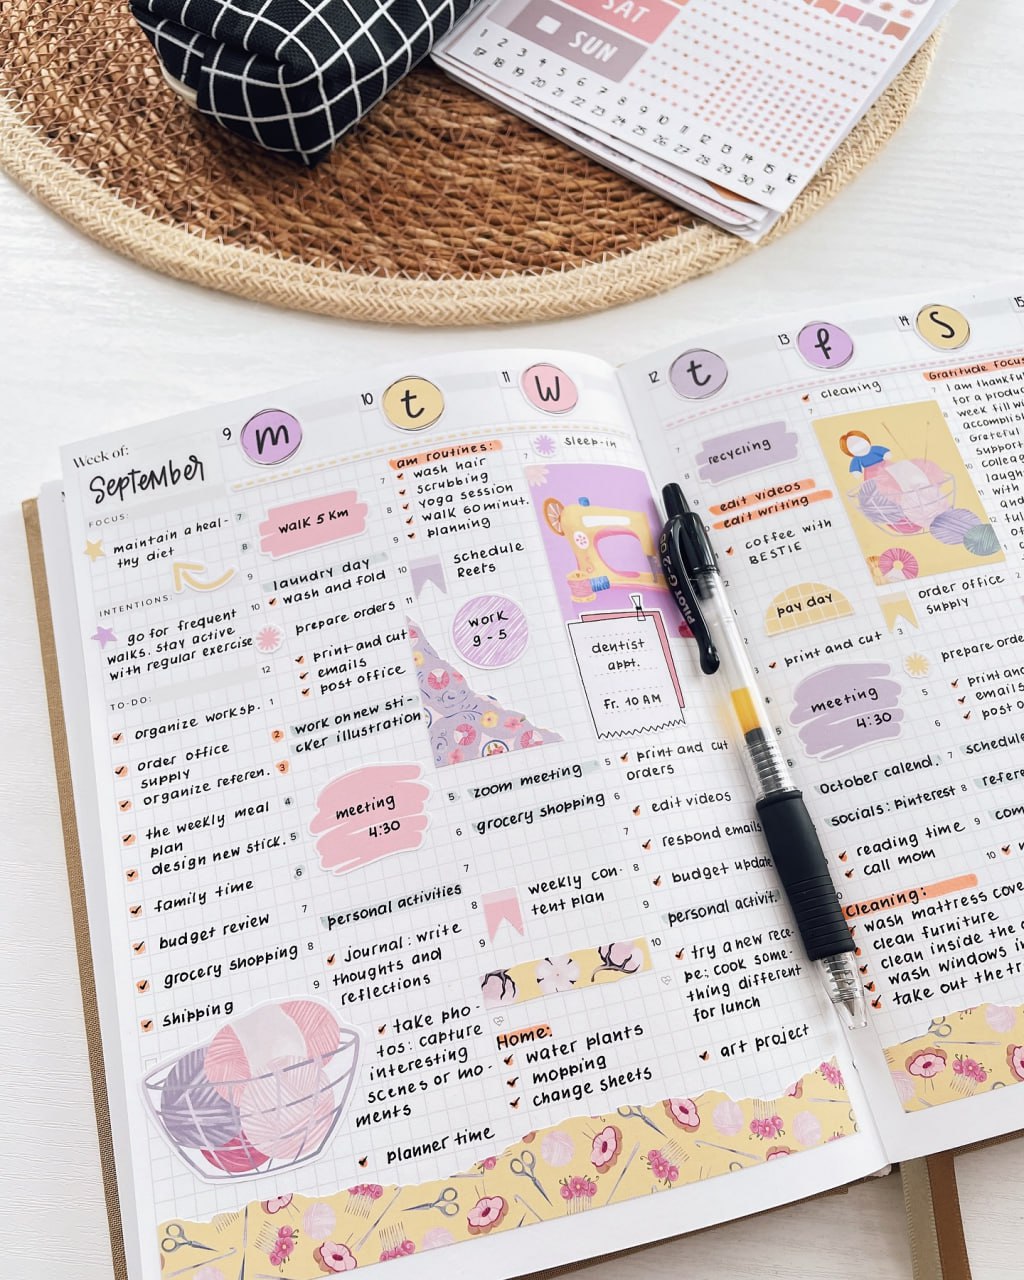 SAT
SUN
1 2 3 4 5 6 7 8 9 10 11 12 13 14 15 16
17 18 19 20 21 22 23 24 25 26 27 28 29 30 31
Week of:
September
FOCUS:
maintain a heal-
thy diet
INTENTIONS:
go for frequent
walks. stay active
with regular exercise
TO-DO:
organize worksp.
order office
supply
organize referen.
the weekly meal
plan
design new stick.
family time
budget review
grocery shopping
shipping
9 m
7
8
9
10
12
1
2
3
4
5
6
8
9
walk 5 km
laundry day
wash and fold
prepare orders
print and cut
emails
post office
work on new sti-
cker illustration
meeting
4:30
personal activities
journal: write
thoughts and
reflections
take pho-
tos: capture
interesting
scenes or mo-
ments
planner time
10 t
7
8
9
10
11
5
6
7
8
9
am routines:
wash hair
scrubbing
yoga session
walk 60 minut.
planning
schedule
Reels
work
9-5
zoom meeting
grocery shopping
weekly con-
tent plan
Home:
water plants
mopping
change sheets
11 w
7
sleep-in
dentist
appt.
Fr. 10 AM
5
6
7
8
9
10
print and cut
orders
edit videos
respond emails
budget update
personal activit.
try a new reci-
pe: cook some-
thing different
for lunch
art project
PILOT G-2
12 t
7
8
9
recycling
edit videos
edit writing
coffee with
BESTIE
pay day
print and cut
meeting
4:30
October calend.
socials: Pinterest
reading time
call mom
Cleaning:
wash mattress cove
clean furniture
clean inside the
wash windows
take out the tr
13 f
7
cleaning
2
3
5
6
7
8
9
10
order office
supply
prepare orde
print and
emails
post o
schedule
refere
com
14 S
Gratitude focus
I am thankfu
for a produc
week fill wi
accomplis
Grateful
support
collea
laugh
with
and
full
of
15